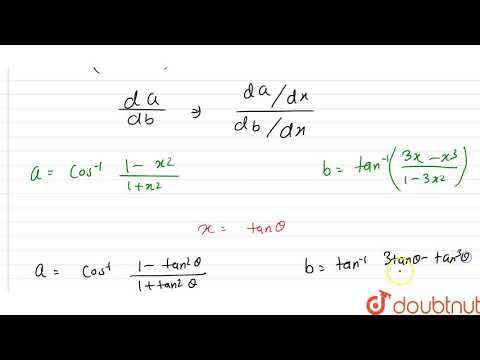 da/db ⇒ (da/dx)/(db/dx)
a = cos⁻¹ (1 - x²)/(1 + x²)    b = tan⁻¹ ((3x - x³)/(1 - 3x²))
x = tanθ
a = cos⁻¹ (1 - tan²θ)/(1 + tan²θ)    b = tan⁻¹ 3tanθ - tan³θ
doubtnut